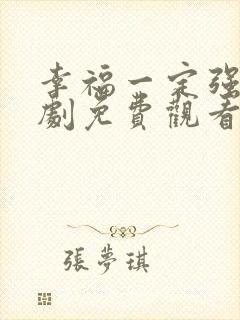 幸福一定强
劇免費觀看
張夢琪